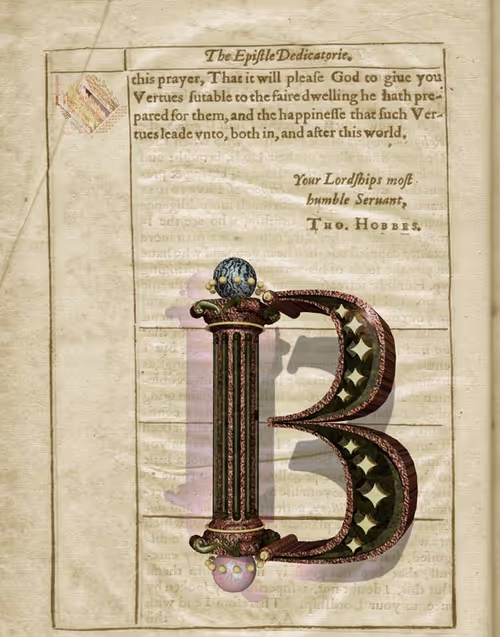 The Epiſtle Dedicatorie.
this prayer, That it will pleaſe God to giue you
Vertues ſutable to the faire dwelling he hath pre-
pared for them, and the happineſſe that ſuch Ver-
tues leade vnto, both in, and after this world.
Your Lordſhips moſt
humble Seruant,
THO. HOBBES.
B